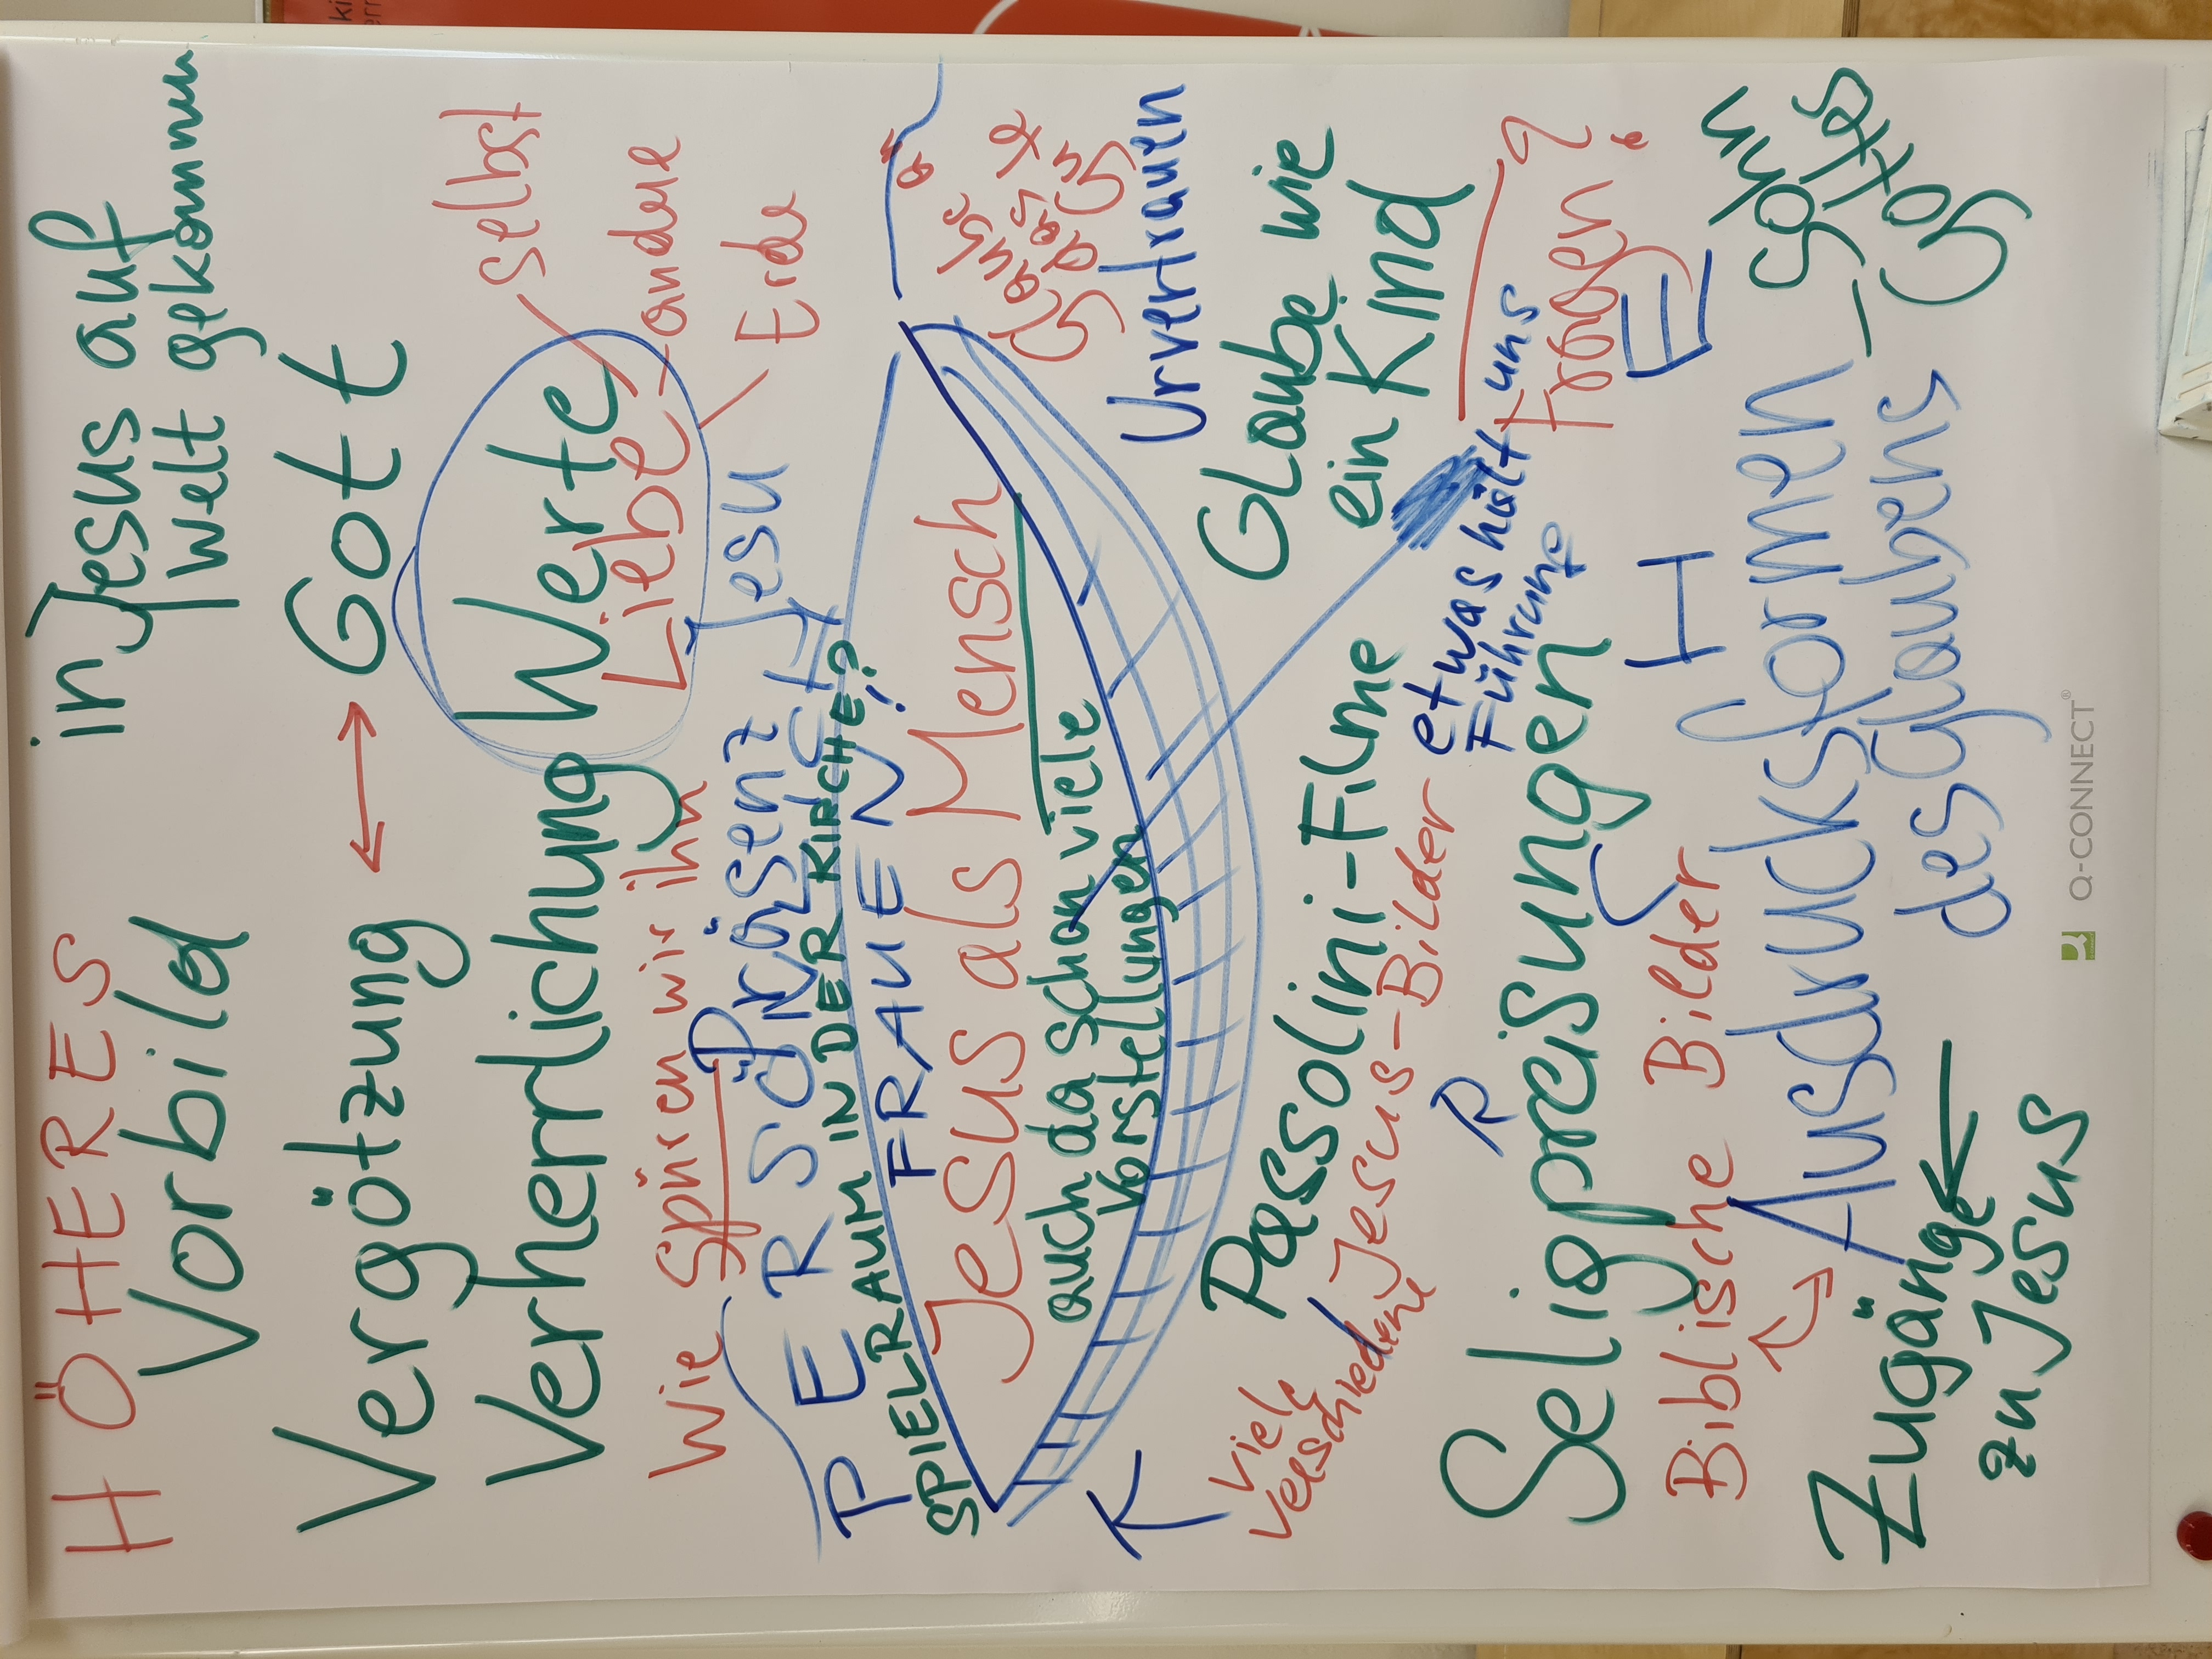 HÖHERES
in Jesus auf
Vorbild
Welt gekommen
Vergötzung ↔ Gott
Verherrlichung
Werte
selbst
Liebe
andere
Erde
Wie spüren wir ihn
Jesu
Präsenz
PERSÖNLICH
SPIELRAUM IN DER KIRCHE?
FRAUEN!
Jesus als Mensch
auch da schon viele
Vorstellungen
Glaube a"
das
Gute
Urvertrauen
Glaube wie
ein Kind
Passolini-Filme
viele
verschiedene Jesus-Bilder
etwas hält uns
Führung
Fragen?
KIRCHE
Seligpreisungen
Biblische Bilder
Ausdrucksformen
des Glaubens
Sohn
Gottes
Zugänge
zu Jesus
Q-CONNECT®